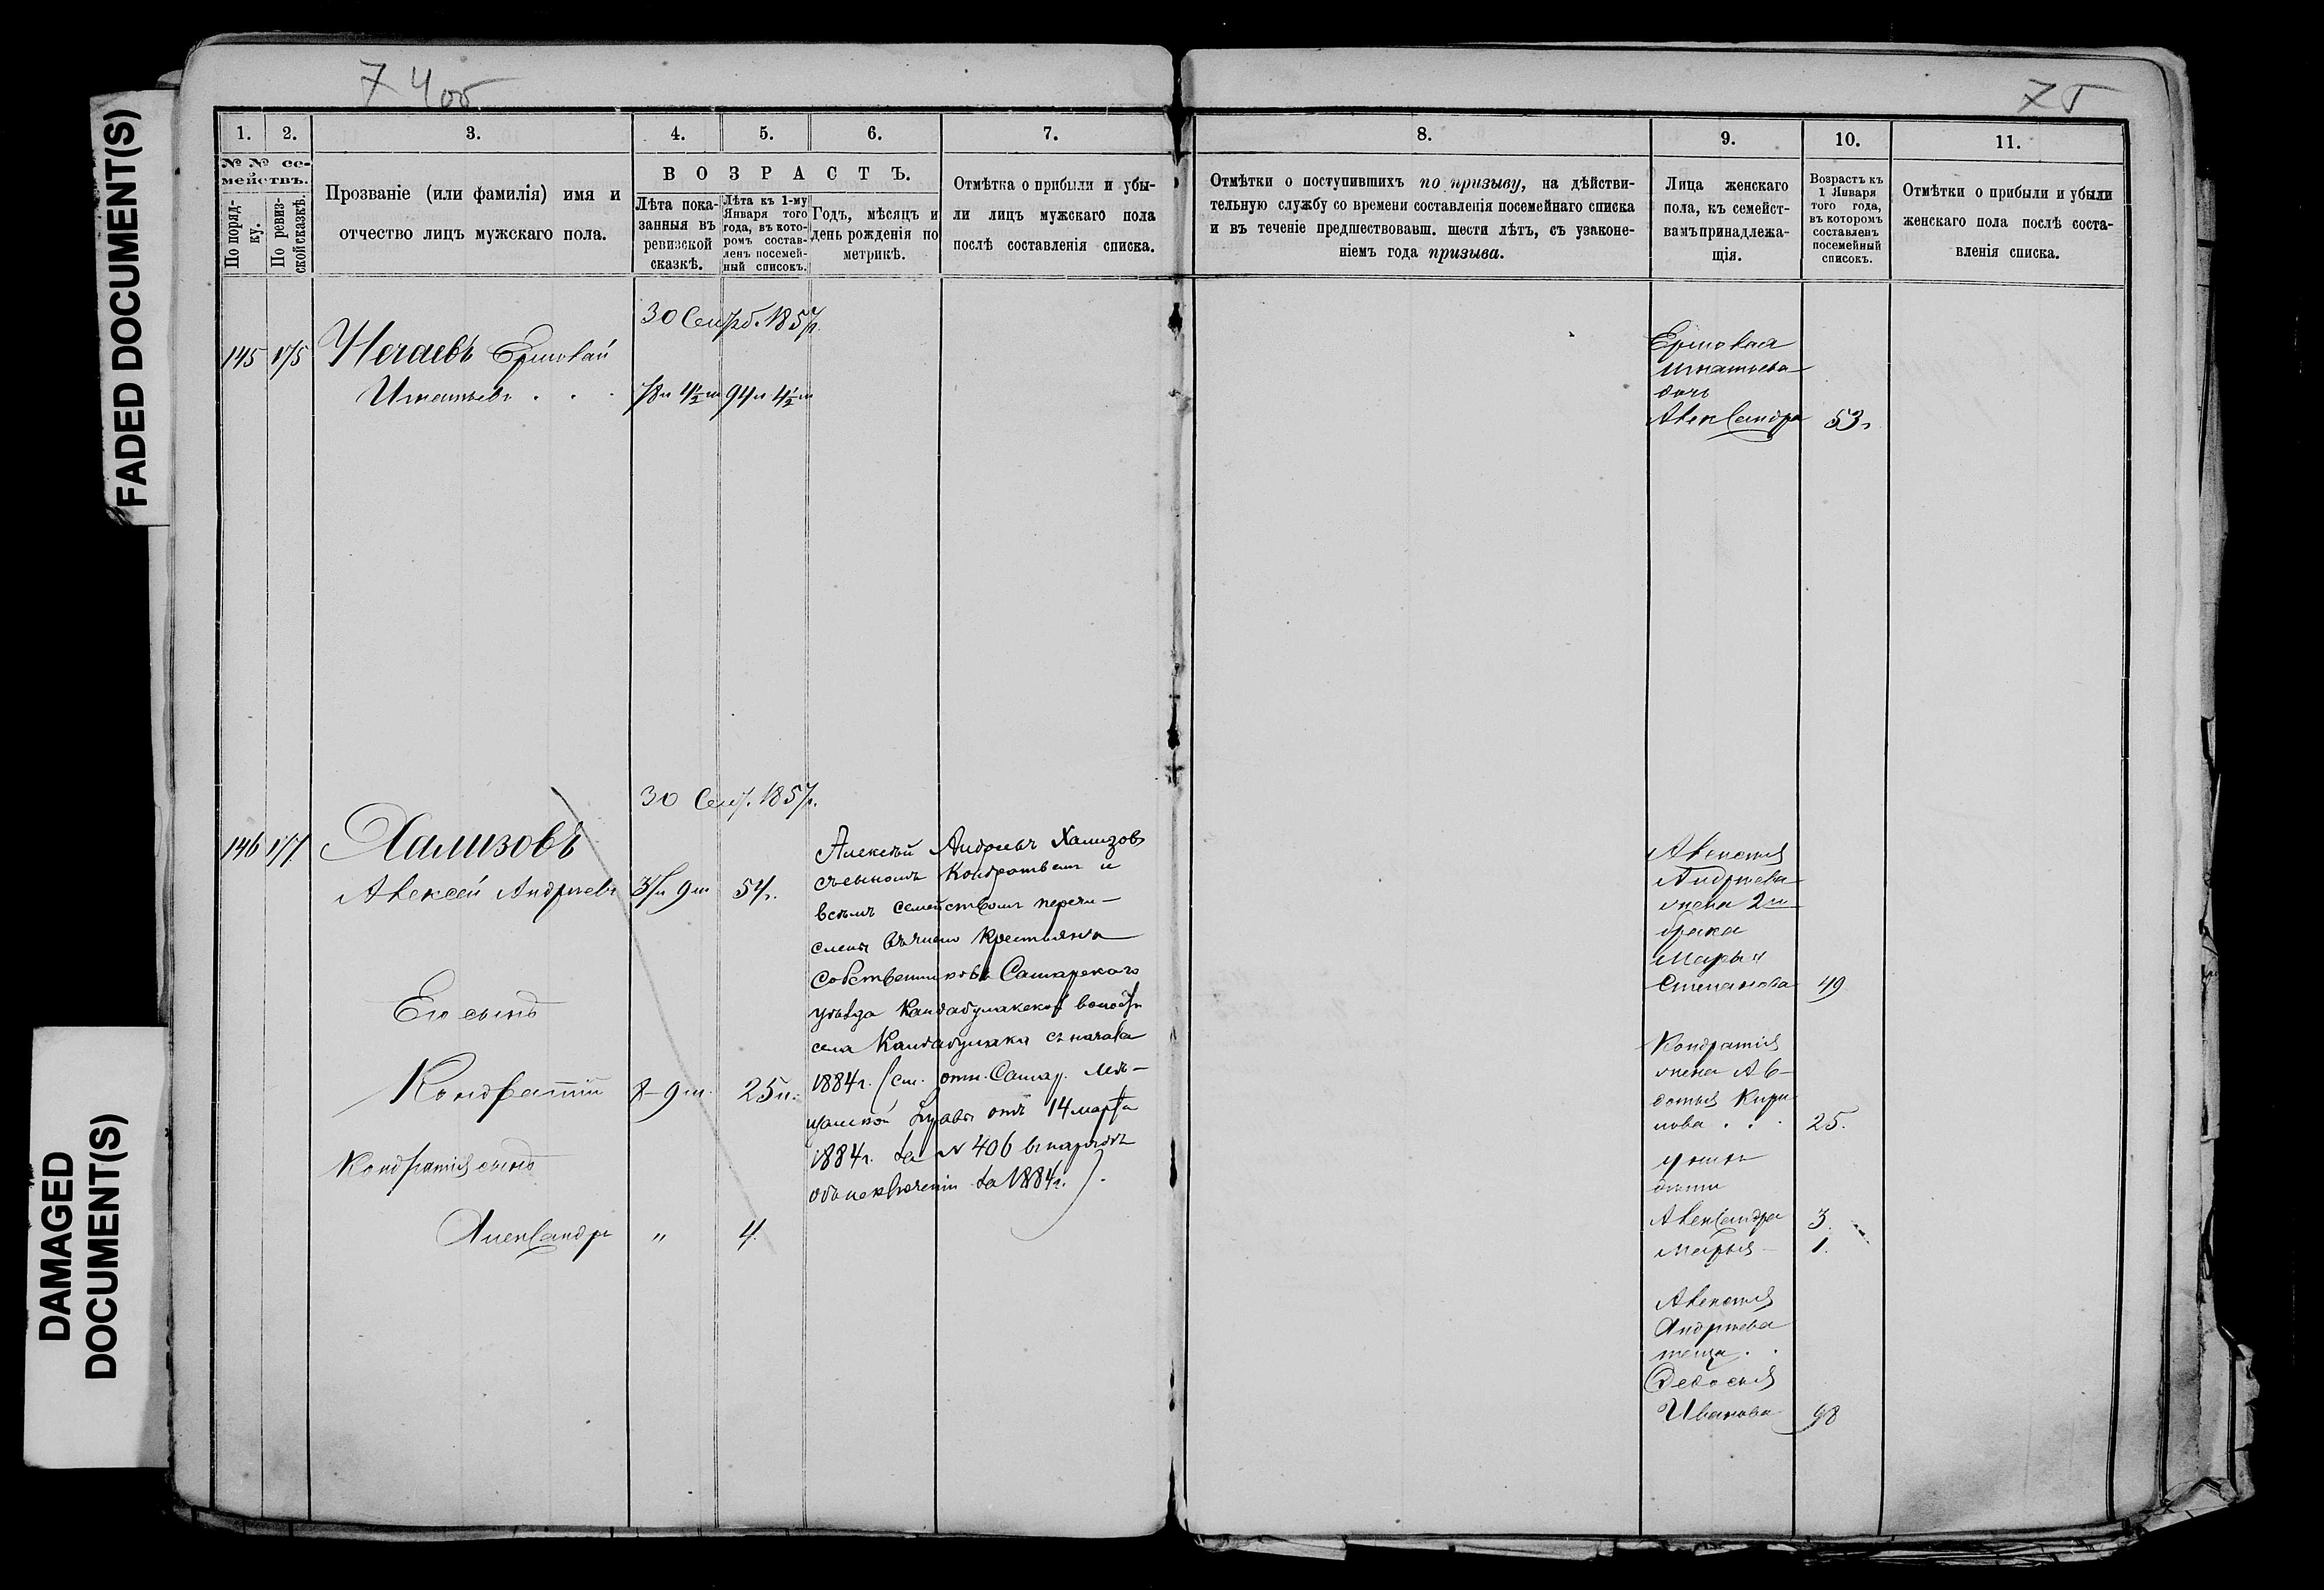 FADED DOCUMENT(S)
DAMAGED
DOCUMENT(S)
74об
75
1. 2. 3. 4. 5. 6. 7.
№ № се-
мействъ.
По поряд-
ку.
По ревиз-
ской сказкѣ.
Прозваніе (или фамилія) имя и
отчество лицъ мужскаго пола.
ВОЗРАСТЪ.
Лѣта пока-
занныя въ
ревизской
сказкѣ.
Лѣта къ 1-му
Января того
года, въ кото-
ромъ состав-
ленъ посемей-
ный списокъ.
Годъ, мѣсяцъ и
день рожденія по
метрикѣ.
Отмѣтка о прибыли и убы-
ли лицъ мужскаго пола
послѣ составленія списка.
30 Сентяб. 1857г.
145 175 Нечаевъ
Игнатьевъ . . . 78л 4½м 94л 4½м
30 Сент. 1857г.
146 177 Хализовъ
Алексей Андреевъ 9м 54г.
Его сынъ
Кондратій 8-9м. 25л.
Кондратія сынъ
Александръ " 4.
Алексѣй Андреевъ Хализовъ
съ сыномъ Кондратьемъ и
всѣмъ семействомъ перечи-
сленъ въ число крестьянъ
собственниковъ Самарскаго
уѣзда Кандабулакской волости
села Кандабулака съ начала
1884г. (см. отн. Самар. Мѣ-
щанской Управы отъ 14 марта
1884г. за № 406 въ нарядѣ
объ исключеніи за 1884г.).
8. 9. 10. 11.
Отмѣтки о поступившихъ по призыву, на дѣйстви-
тельную службу со времени составленія посемейнаго списка
и въ теченіе предшествовавш. шести лѣтъ, съ узаконе-
ніемъ года призыва.
Лица женскаго
пола, къ семейст-
вамъ принадлежа-
щія.
Возрастъ къ
1 Января
того года,
въ которомъ
составленъ
посемейный
списокъ.
Отмѣтки о прибыли и убыли
женскаго пола послѣ соста-
вленія списка.
Игнатьева
дочь
Александра 53г
Алексея
Андреева
жена 2го
брака
Марья
Степанова 49
Кондратія
жена Ав-
дотья Кири
лова . . . 25.
у нихъ
дѣти
Александра 3.
Марья - 1.
Алексея
Андреева
теща . .
Федосья
Иванова 98